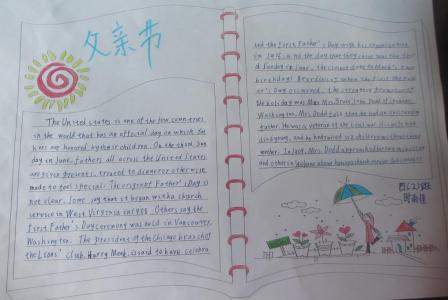 父亲节
The United States is one of the few countries
in the world that has an official day on which
are honored by their children. On the third Sun
day in June, fathers all across the United States
are given presents, treated to dinner or otherwise
made to feel special. The origin of Father's Day is
not clear. Some say that it began with a church
service in West Virginia in 1908. Others say the
first Father's Day ceremony was held in Vancouver,
Washington. The president of the Chicago branch of
the Lions' Club, Harry Meek, is said to have celebra
ted the first Father's Day with his organization
in the day that they chose was the thir
d Sunday in June, the closest date to Meek's own
birthday! Regardless of when the first
's Day occurred, the strongest promoter of
the holiday was Mrs. Bruce Dodd of Spokane,
Washington. Mrs. Dodd felt that she had an outstanding
father. He was a veteran of the Civil War. His wife had
died young, and he had raised six children without their
mother. In 1909, Mrs. Dodd approached her own minister
and others in Spokane about having a church service